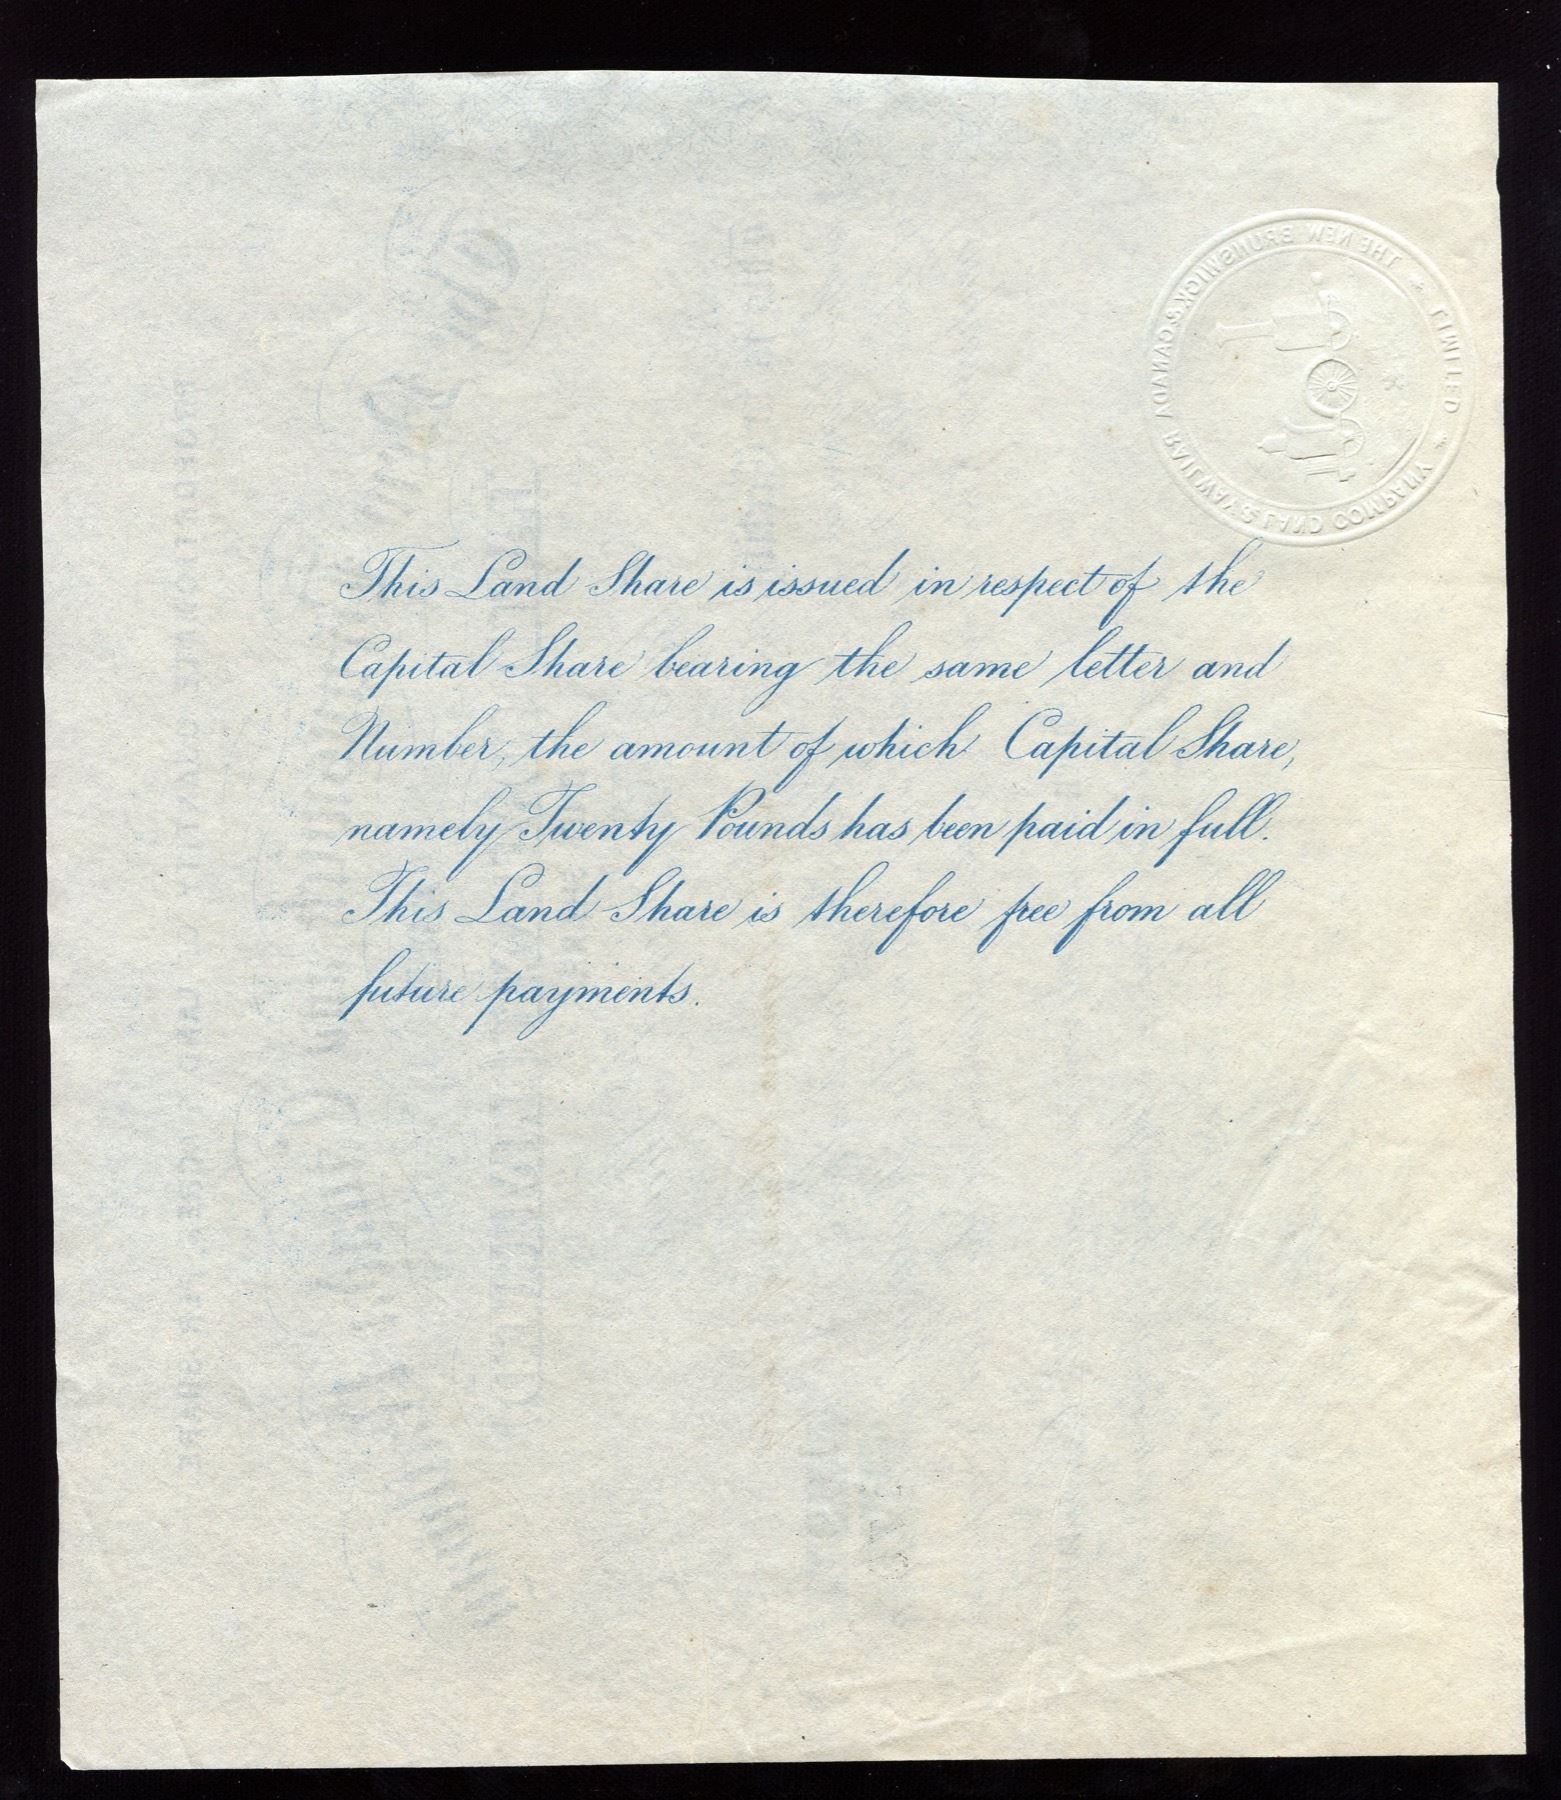 THE NEW BRUNSWICK & CANADA RAILWAY & LAND COMPANY
LIMITED
This Land Share is issued in respect of the
Capital Share bearing the same letter and
Number, the amount of which Capital Share,
namely Twenty Pounds has been paid in full.
This Land Share is therefore free from all
future payments.